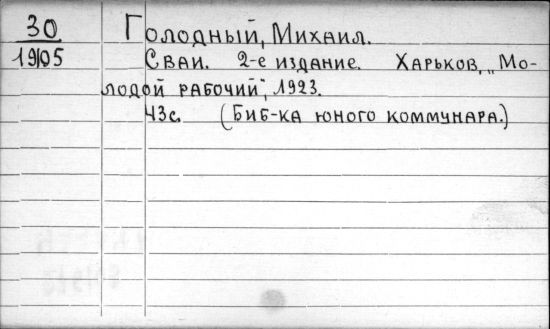 30 Голодный, Михаил.
19105 Сваи. 2-е издание. Харьков, „Мо-
лодой рабочий", 1923.
43с. (Биб-ка юного коммунара.)